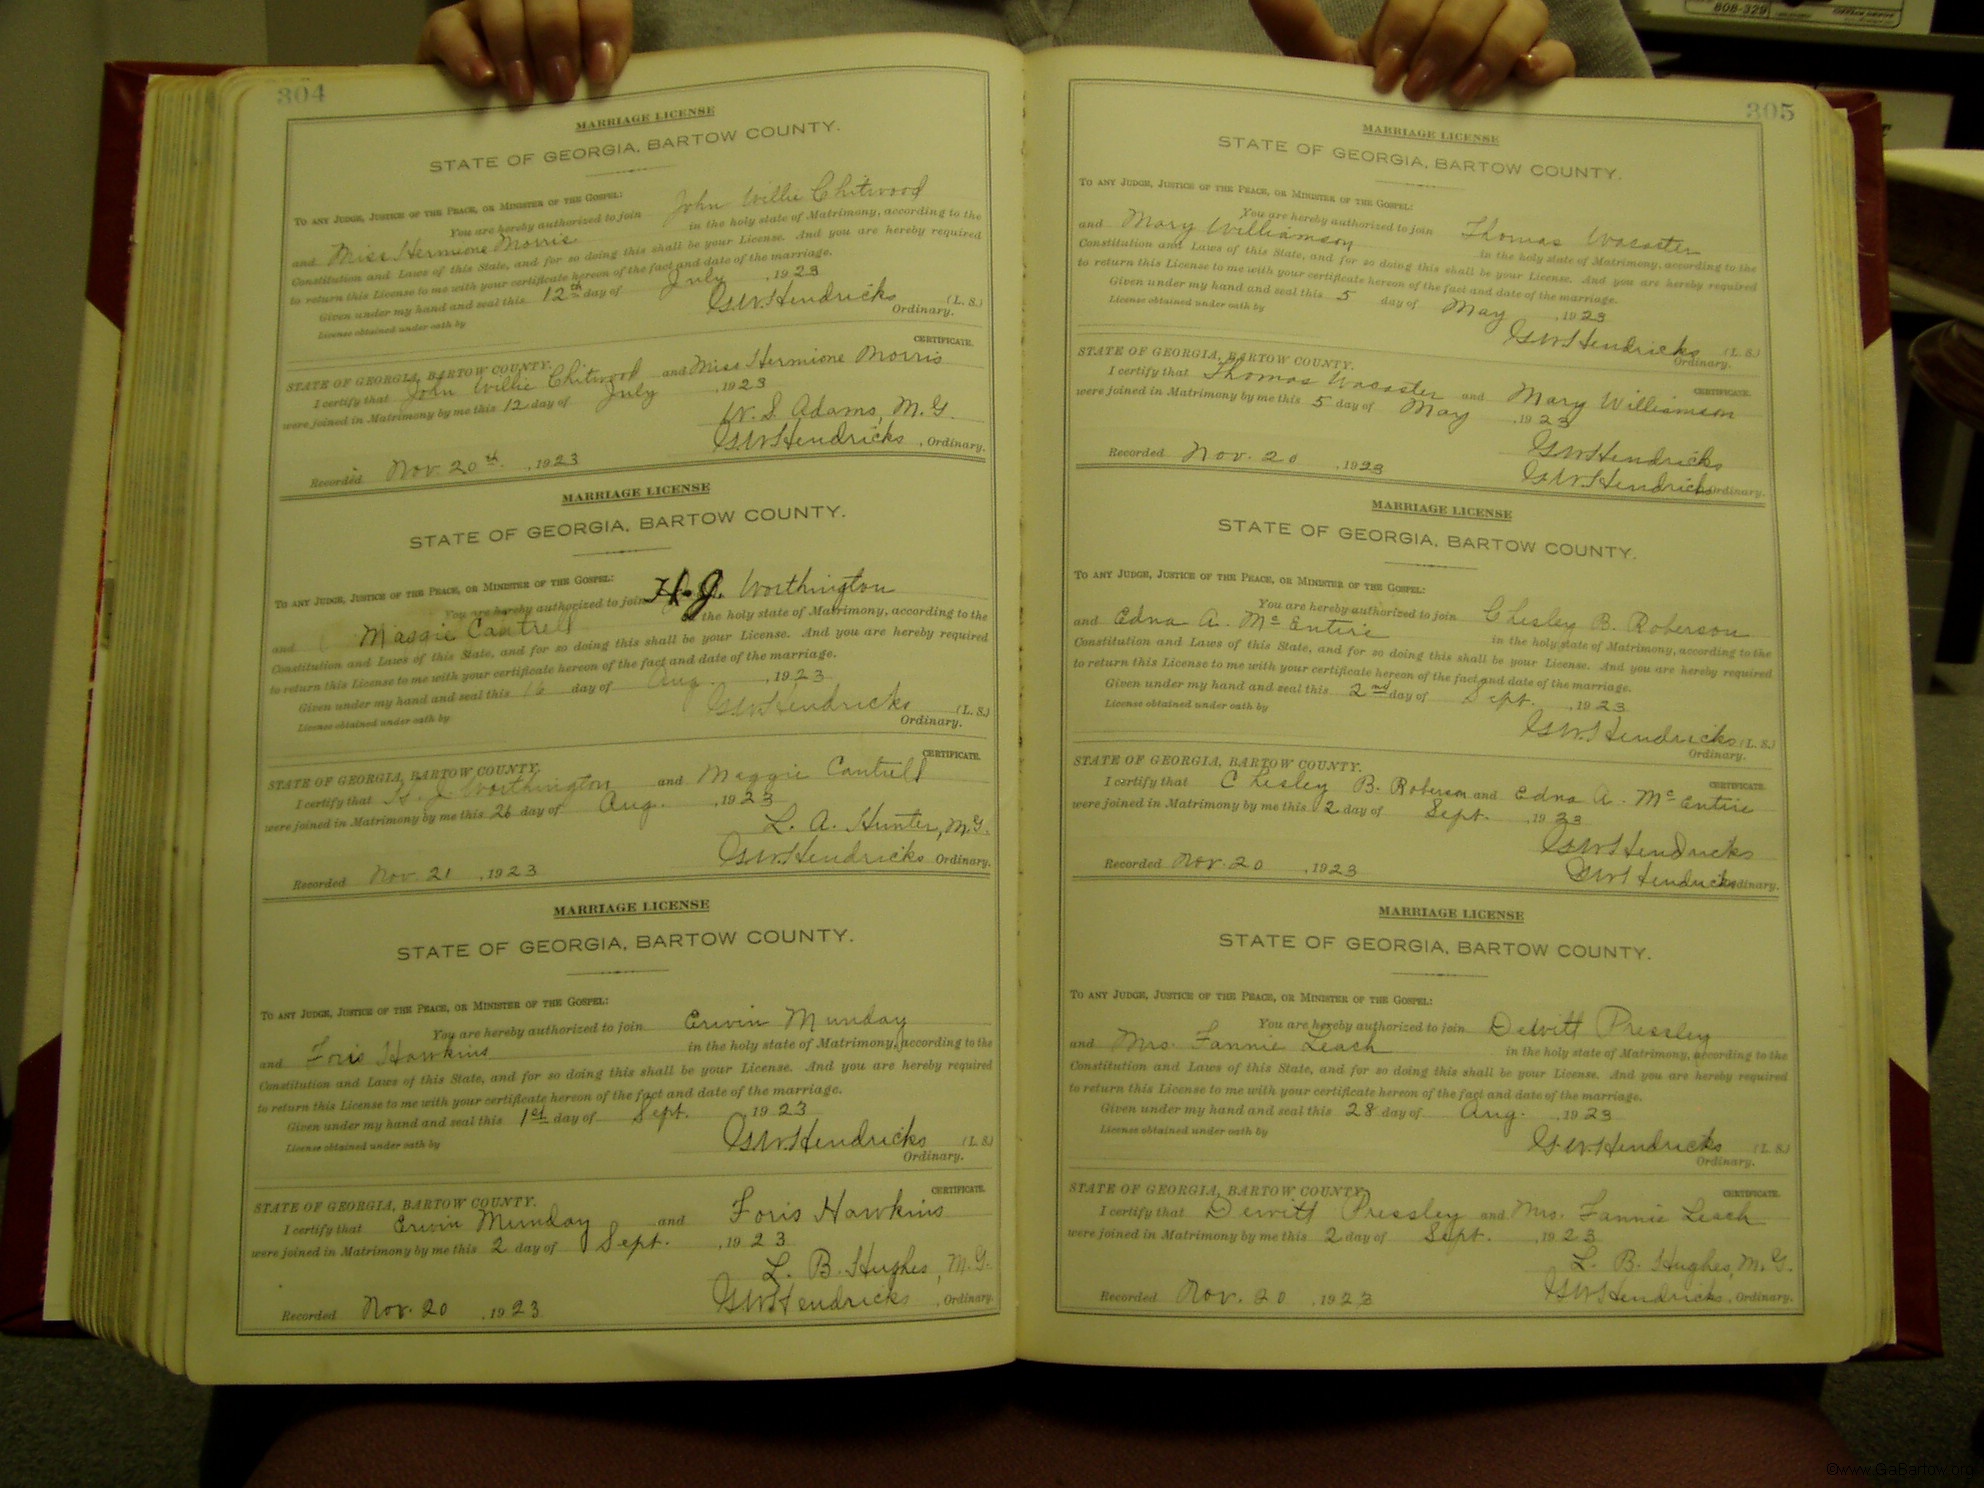 304
MARRIAGE LICENSE
STATE OF GEORGIA, BARTOW COUNTY.
TO ANY JUDGE, JUSTICE OF THE PEACE, OR MINISTER OF THE GOSPEL:
You are hereby authorized to join John Willie Chitwood
and Miss Hermione Morris in the holy state of Matrimony, according to the
Constitution and Laws of this State, and for so doing this shall be your License. And you are hereby required
to return this License to me with your certificate hereon of the fact and date of the marriage.
Given under my hand and seal this 12th day of July, 1923
License obtained under oath by G.W. Hendricks (L. S.)
Ordinary.
CERTIFICATE.
STATE OF GEORGIA, BARTOW COUNTY.
I certify that John Willie Chitwood and Miss Hermione Morris
were joined in Matrimony by me this 12 day of July, 1923
W. S. Adams, M.G.
Recorded Nov. 20th, 1923 G.W. Hendricks, Ordinary.
MARRIAGE LICENSE
STATE OF GEORGIA, BARTOW COUNTY.
TO ANY JUDGE, JUSTICE OF THE PEACE, OR MINISTER OF THE GOSPEL:
You are hereby authorized to join H.J. Worthington
and Maggie Cantrell the holy state of Matrimony, according to the
Constitution and Laws of this State, and for so doing this shall be your License. And you are hereby required
to return this License to me with your certificate hereon of the fact and date of the marriage.
Given under my hand and seal this 16 day of Aug., 1923
License obtained under oath by G.W. Hendricks (L. S.)
Ordinary.
CERTIFICATE.
STATE OF GEORGIA, BARTOW COUNTY.
I certify that H. J. Worthington and Maggie Cantrell
were joined in Matrimony by me this 26 day of Aug., 1923
L. A. Hunter, M.G.
Recorded Nov. 21, 1923 G.W. Hendricks Ordinary.
MARRIAGE LICENSE
STATE OF GEORGIA, BARTOW COUNTY.
TO ANY JUDGE, JUSTICE OF THE PEACE, OR MINISTER OF THE GOSPEL:
You are hereby authorized to join Erwin Munday
and Foris Hawkins in the holy state of Matrimony, according to the
Constitution and Laws of this State, and for so doing this shall be your License. And you are hereby required
to return this License to me with your certificate hereon of the fact and date of the marriage.
Given under my hand and seal this 1st day of Sept., 1923
License obtained under oath by G.W. Hendricks (L. S.)
Ordinary.
CERTIFICATE.
STATE OF GEORGIA, BARTOW COUNTY.
I certify that Erwin Munday and Foris Hawkins
were joined in Matrimony by me this 2 day of Sept., 1923
L. B. Hughes, M.G.
Recorded Nov. 20, 1923 G.W. Hendricks, Ordinary.
305
MARRIAGE LICENSE
STATE OF GEORGIA, BARTOW COUNTY.
TO ANY JUDGE, JUSTICE OF THE PEACE, OR MINISTER OF THE GOSPEL:
You are hereby authorized to join Thomas Wacaster
and Mary Williamson in the holy state of Matrimony, according to the
Constitution and Laws of this State, and for so doing this shall be your License. And you are hereby required
to return this License to me with your certificate hereon of the fact and date of the marriage.
Given under my hand and seal this 5 day of May, 1923
License obtained under oath by G.W. Hendricks (L. S.)
Ordinary.
CERTIFICATE.
STATE OF GEORGIA, BARTOW COUNTY.
I certify that Thomas Wacaster and Mary Williamson
were joined in Matrimony by me this 5 day of May, 1923
G.W. Hendricks
Recorded Nov. 20, 1923 G.W. Hendricks Ordinary.
MARRIAGE LICENSE
STATE OF GEORGIA, BARTOW COUNTY.
TO ANY JUDGE, JUSTICE OF THE PEACE, OR MINISTER OF THE GOSPEL:
You are hereby authorized to join Chesley B. Roberson
and Edna A. McEntire in the holy state of Matrimony, according to the
Constitution and Laws of this State, and for so doing this shall be your License. And you are hereby required
to return this License to me with your certificate hereon of the fact and date of the marriage.
Given under my hand and seal this 2nd day of Sept., 1923
License obtained under oath by G.W. Hendricks (L. S.)
Ordinary.
CERTIFICATE.
STATE OF GEORGIA, BARTOW COUNTY.
I certify that Chesley B. Roberson and Edna A. McEntire
were joined in Matrimony by me this 2 day of Sept., 1923
G.W. Hendricks
Recorded Nov. 20, 1923 G.W. Hendricks Ordinary.
MARRIAGE LICENSE
STATE OF GEORGIA, BARTOW COUNTY.
TO ANY JUDGE, JUSTICE OF THE PEACE, OR MINISTER OF THE GOSPEL:
You are hereby authorized to join Dewitt Pressley
and Mrs. Fannie Leach in the holy state of Matrimony, according to the
Constitution and Laws of this State, and for so doing this shall be your License. And you are hereby required
to return this License to me with your certificate hereon of the fact and date of the marriage.
Given under my hand and seal this 28 day of Aug., 1923
License obtained under oath by G.W. Hendricks (L. S.)
Ordinary.
CERTIFICATE.
STATE OF GEORGIA, BARTOW COUNTY.
I certify that Dewitt Pressley and Mrs. Fannie Leach
were joined in Matrimony by me this 2 day of Sept., 1923
L. B. Hughes, M.G.
Recorded Nov. 20, 1923 G.W. Hendricks, Ordinary.
808-329
©www.GaBartow.org